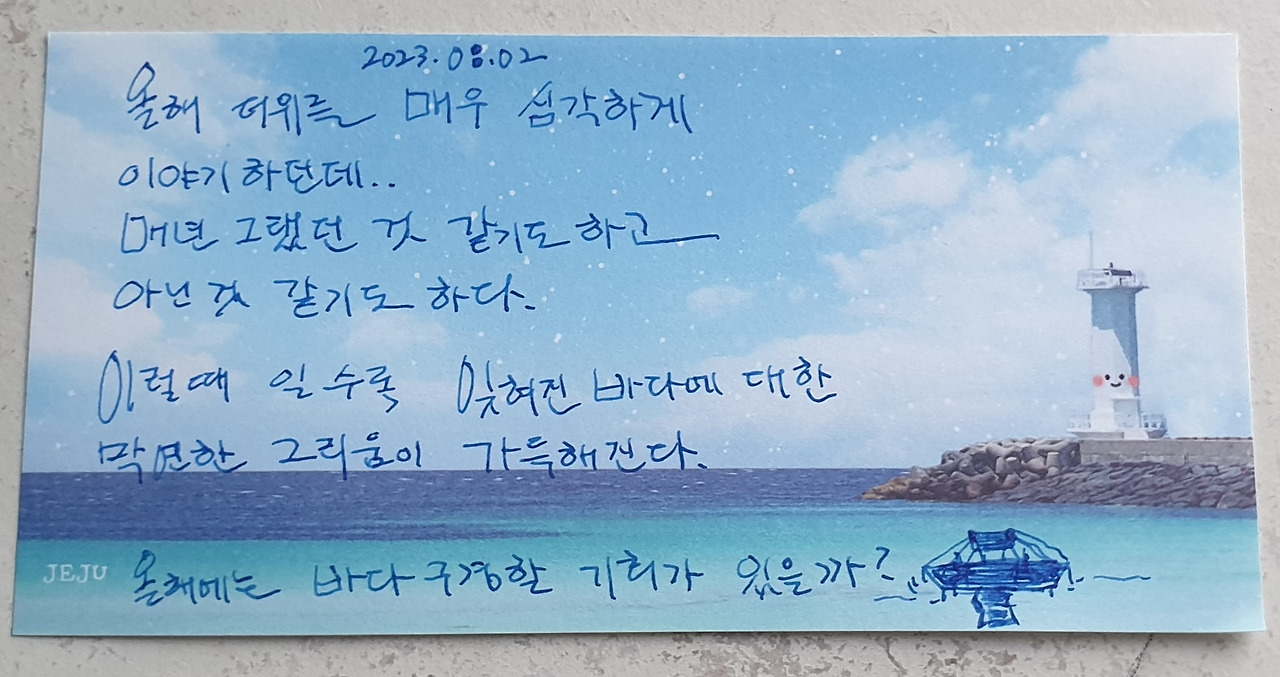 2023.08.02
올해 더위를 매우 심각하게
이야기 하던데..
매년 그랬던 것 같기도 하고
아닌것 같기도 하다.
이럴때 일수록 잊혀진 바다에 대한
막연한 그리움이 가득해진다.
JEJU
올해에는 바다 구경할 기회가 있을까?